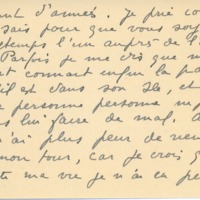 ant d'années. Je prie co
sais pour que vous soy
temps l'un auprès de l'
Parfois je me dis que m
connaît enfin la pa
il est dans son île, et
personne personne ne p
lui faire de mal.
n'ai plus peur de
mon tour, car je crois q
te ma vie je n'ai ca pe